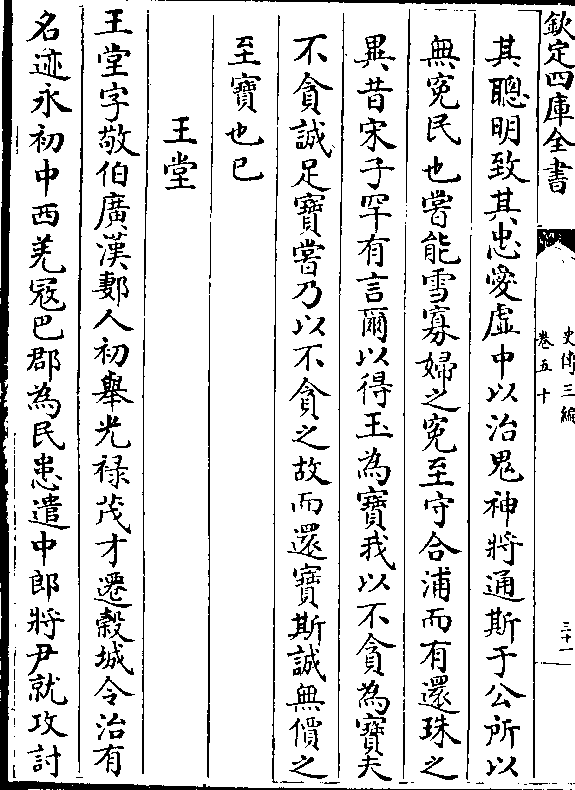 欽定四庫全書
史傳三編
卷五十
三十一
其聰明致其忠愛虛中以治鬼神將通斯于公所以
無冤民也嘗能雪寡婦之冤至守合浦而有還珠之
異昔宋子罕有言爾以得玉為寶我以不貪為寶夫
不貪誠足寶嘗乃以不貪之故而還寶斯誠無價之
至寶也已
王堂
王堂字敬伯廣漢郪人初舉光祿茂才遷穀城令治有
名迹永初中西羌寇巴郡為民患遣中郎將尹就攻討